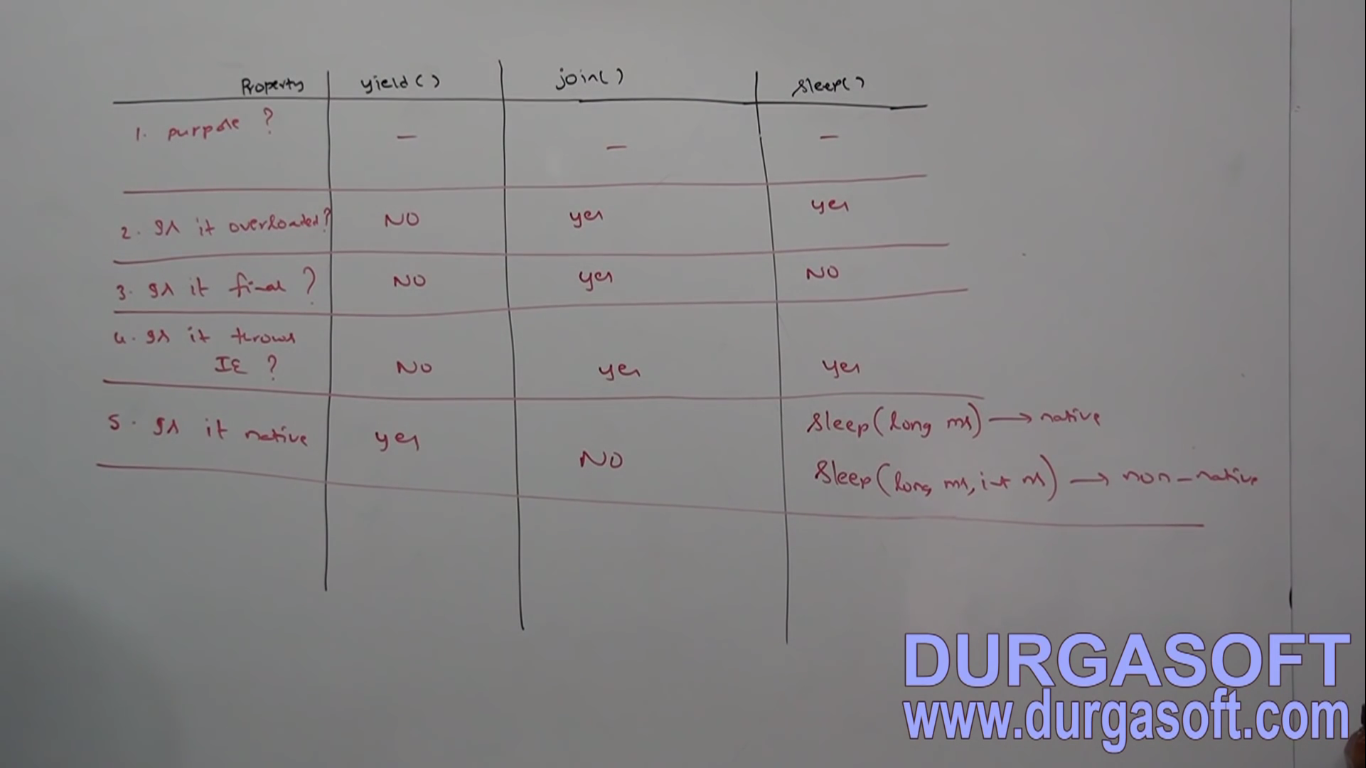 Property yield() join() sleep()
1. purpose ? — — —
2. Is it overloaded? NO yes yes
3. Is it final ? NO yes NO
4. Is it throws
IE ? NO yes yes
5. Is it native yes NO sleep(long ms) → native
sleep(long ms, int ns) → non-native
DURGASOFT
www.durgasoft.com